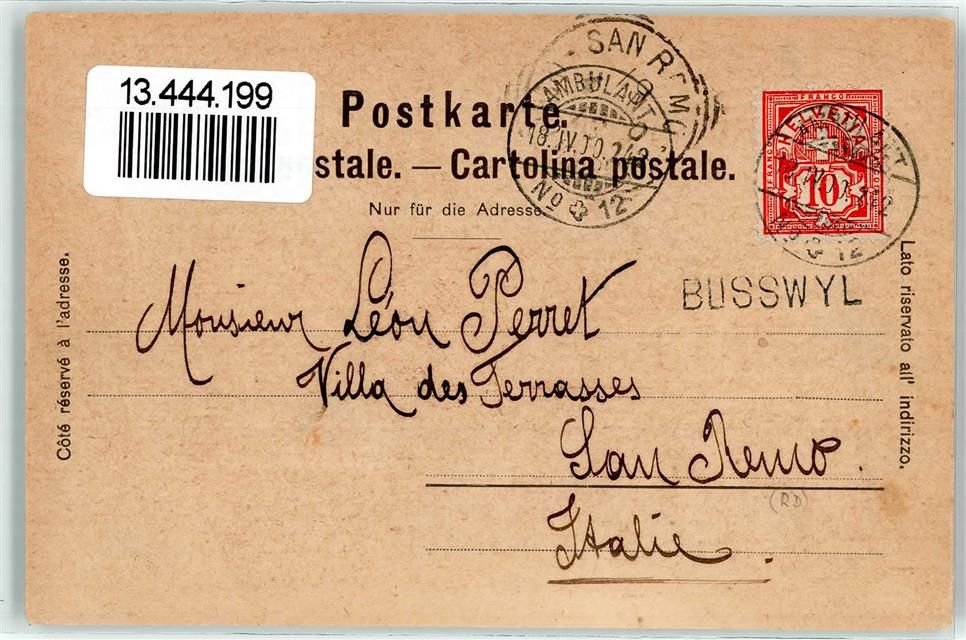 13.444.199
Postkarte.
stale. — Cartolina postale.
Nur für die Adresse
Côté réservé à l'adresse.
Lato riservato all' indirizzo.
SAN REMO
AMBULANT
18.IV.00
No 12
FRANCO
HELVETIA
10
12
BUSSWYL
Monsieur Léon Perret
Villa des Terrasses
San Remo.
(RD)
Italie.